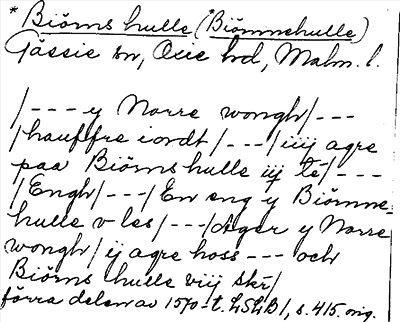 * Biörns hulle (Biörnnehulle)
Gässie sn, Oxie hd, Malm. l.
/--- y Norre wongh/---
/hauffre iordt/---/iiij agre
paa Biörns hulle iij le/---
/Engh/---/En eng y Biörnne-
hulle v les/---/Ager y Norre
wongh/ ij agre hoss --- och
Biörns hulle viij skr/
förra delen av 1570-t. LSLB 1, s. 415. orig.